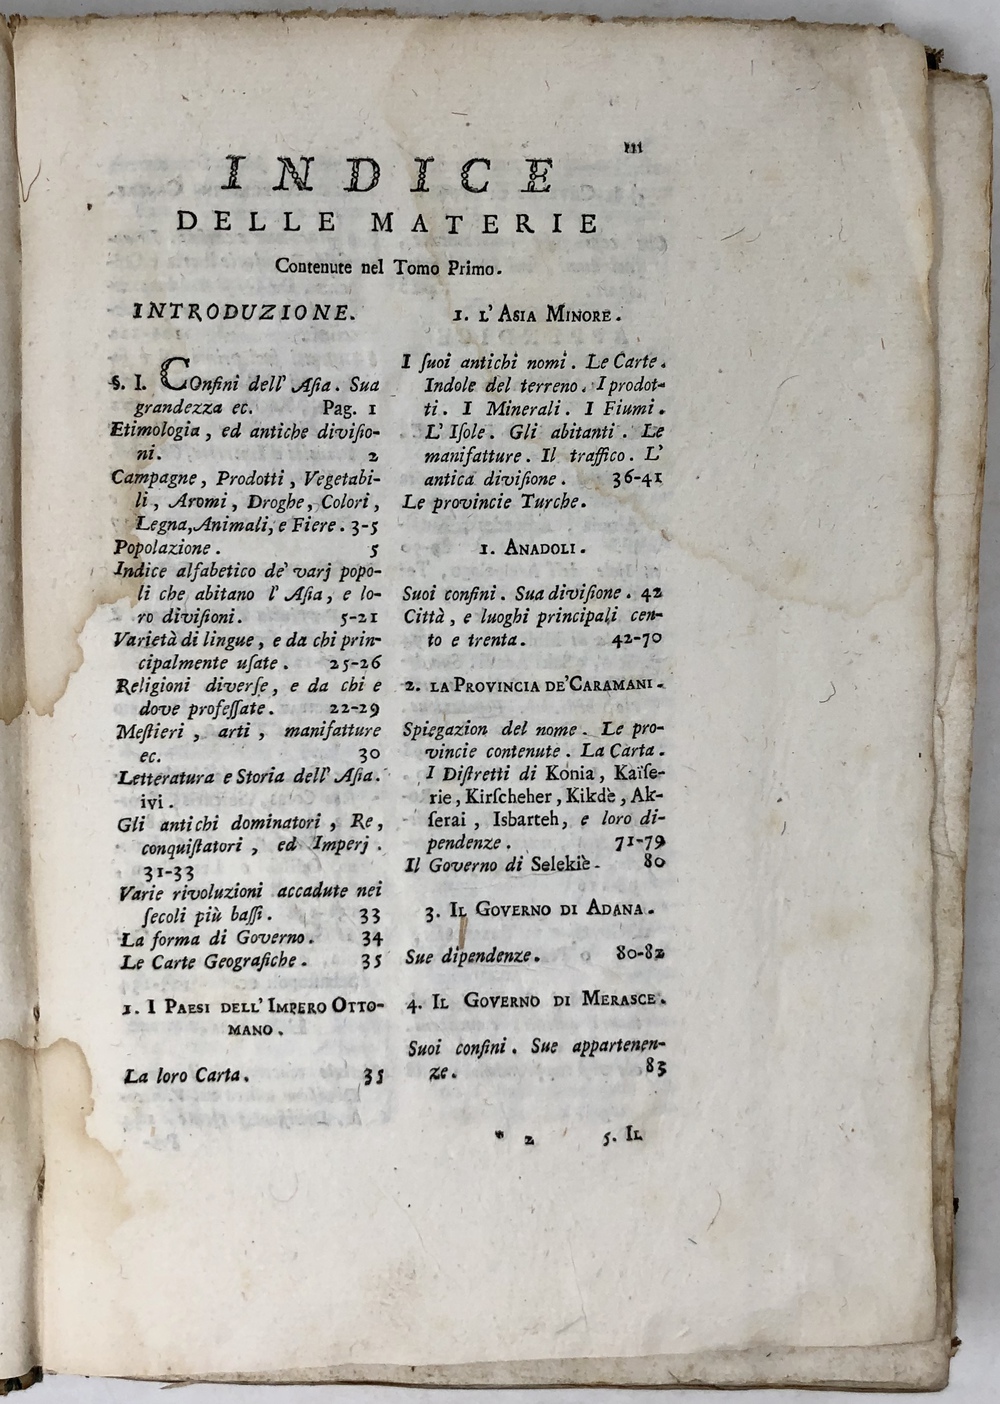 III
INDICE
DELLE MATERIE
Contenute nel Tomo Primo.
INTRODUZIONE.
§. I. COnfini dell' Aſia. Sua
grandezza ec. Pag. 1
Etimologia, ed antiche diviſio-
ni. 2
Campagne, Prodotti, Vegetabi-
li, Aromi, Droghe, Colori,
Legna, Animali, e Fiere. 3-5
Popolazione. 5
Indice alfabetico de' varj popo-
li che abitano l' Aſia, e lo-
ro diviſioni. 5-21
Varietà di lingue, e da chi prin-
cipalmente uſate. 25-26
Religioni diverſe, e da chi e
dove profeſſate. 22-29
Meſtieri, arti, manifatture
ec. 30
Letteratura e Storia dell' Aſia.
ivi.
Gli antichi dominatori, Re,
conquiſtatori, ed Imperj.
31-33
Varie rivoluzioni accadute nei
ſecoli più baſſi. 33
La forma di Governo. 34
Le Carte Geografiche. 35
1. I PAESI DELL' IMPERO OTTO-
MANO.
La loro Carta. 35
1. L' ASIA MINORE.
I ſuoi antichi nomi. Le Carte.
Indole del terreno. I prodot-
ti. I Minerali. I Fiumi.
L' Iſole. Gli abitanti. Le
manifatture. Il traffico. L'
antica diviſione. 36-41
Le provincie Turche.
1. ANADOLI.
Suoi confini. Sua diviſione. 42
Città, e luoghi principali cen-
to e trenta. 42-70
2. LA PROVINCIA DE' CARAMANI.
Spiegazion del nome. Le pro-
vincie contenute. La Carta.
I Diſtretti di Konia, Kaïſe-
rie, Kirſcheher, Kikdè, Ak-
ſerai, Isbarteh, e loro di-
pendenze. 71-79
Il Governo di Selekiè. 80
3. IL GOVERNO DI ADANA.
Sue dipendenze. 80-82
4. IL GOVERNO DI MERASCE.
Suoi confini. Sue appartenen-
ze. 83
* 2 5. IL